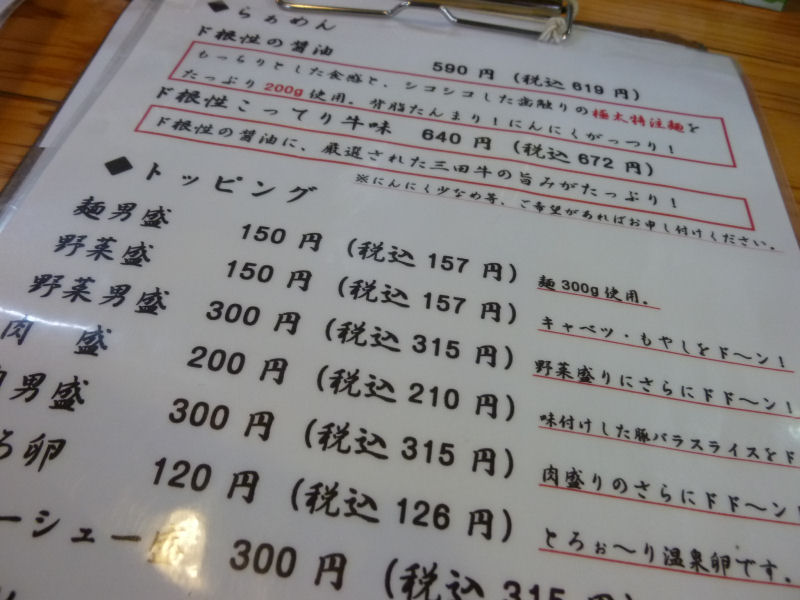 ◆らぁめん
ド根性の醤油 590円(税込619円)
もっちりとした食感と、シコシコした歯触りの極太特注麺を
たっぷり200g使用。背脂たんまり!にんにくがっつり!
ド根性こってり牛味 640円(税込672円)
ド根性の醤油に、厳選された三田牛の旨みがたっぷり!
※にんにく少なめ等、ご希望があればお申し付けください。
◆トッピング
麺男盛 150円(税込157円) 麺300g使用。
野菜盛 150円(税込157円) キャベツ・もやしをド〜ン!
野菜男盛 300円(税込315円) 野菜盛りにさらにドド〜ン!
肉 盛 200円(税込210円) 味付けした豚バラスライスをド
男盛 300円(税込315円) 肉盛りのさらにドド〜ン!
ろ卵 120円(税込126円) とろぉ〜り温泉卵です。
ーシュー盛 300円(税込315円